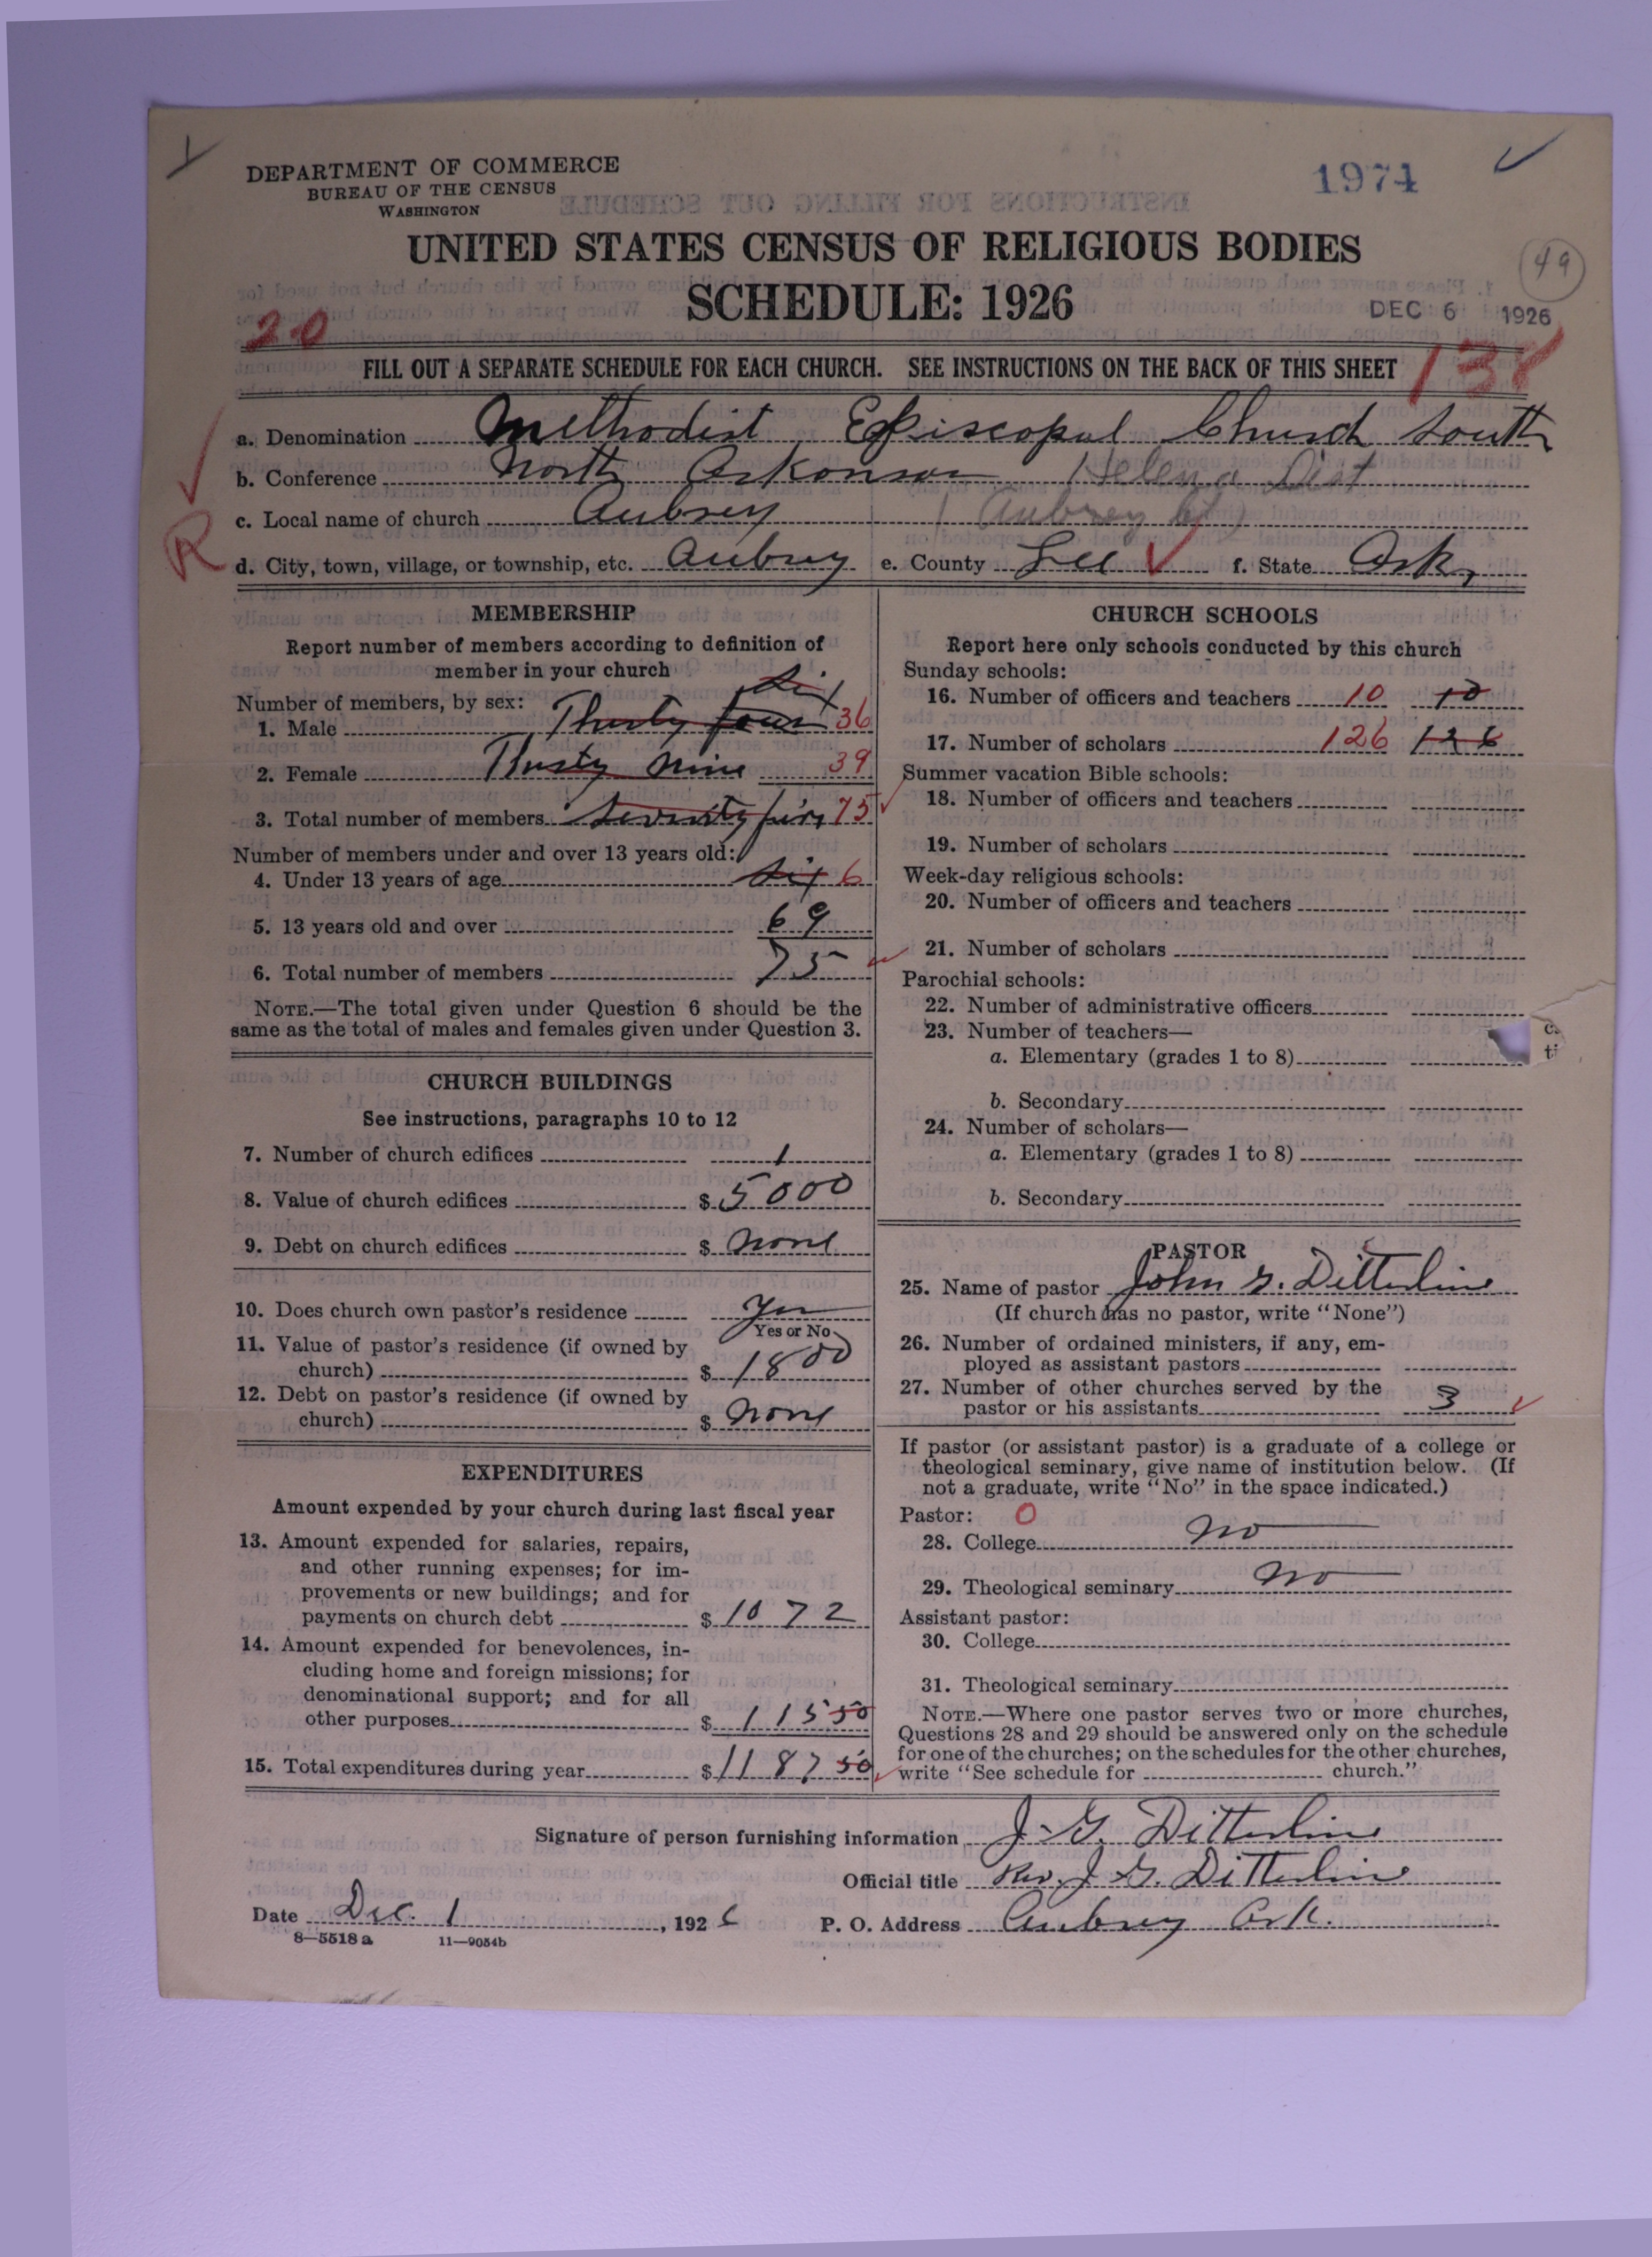 DEPARTMENT OF COMMERCE
BUREAU OF THE CENSUS
WASHINGTON
1974
UNITED STATES CENSUS OF RELIGIOUS BODIES
49
SCHEDULE: 1926
DEC 6 1926
20
FILL OUT A SEPARATE SCHEDULE FOR EACH CHURCH. SEE INSTRUCTIONS ON THE BACK OF THIS SHEET
138
a. Denomination Methodist Episcopal Church South
b. Conference North Arkansas Helena Dist
c. Local name of church Aubrey (Aubrey
R
d. City, town, village, or township, etc. Aubrey e. County Lee f. State Ark,
MEMBERSHIP
Report number of members according to definition of
member in your church
Number of members, by sex: Six
1. Male Thirty four 36
2. Female Thirty Nine 39
3. Total number of members Seventy five 75
Number of members under and over 13 years old:
4. Under 13 years of age Six 6
5. 13 years old and over 69
6. Total number of members 75
NOTE.—The total given under Question 6 should be the
same as the total of males and females given under Question 3.
CHURCH BUILDINGS
See instructions, paragraphs 10 to 12
7. Number of church edifices 1
8. Value of church edifices $ 5000
9. Debt on church edifices $ None
10. Does church own pastor's residence Yes
Yes or No
11. Value of pastor's residence (if owned by
church) $ 1800
12. Debt on pastor's residence (if owned by
church) $ None
EXPENDITURES
Amount expended by your church during last fiscal year
13. Amount expended for salaries, repairs,
and other running expenses; for im-
provements or new buildings; and for
payments on church debt $ 1072
14. Amount expended for benevolences, in-
cluding home and foreign missions; for
denominational support; and for all
other purposes $ 115 50
15. Total expenditures during year $ 1187 50
CHURCH SCHOOLS
Report here only schools conducted by this church
Sunday schools:
16. Number of officers and teachers 10 10
17. Number of scholars 126 126
Summer vacation Bible schools:
18. Number of officers and teachers
19. Number of scholars
Week-day religious schools:
20. Number of officers and teachers
21. Number of scholars
Parochial schools:
22. Number of administrative officers
23. Number of teachers—
a. Elementary (grades 1 to 8)
b. Secondary
24. Number of scholars—
a. Elementary (grades 1 to 8)
b. Secondary
PASTOR
25. Name of pastor John G. Ditterline
(If church has no pastor, write "None")
26. Number of ordained ministers, if any, em-
ployed as assistant pastors
27. Number of other churches served by the
pastor or his assistants 3
If pastor (or assistant pastor) is a graduate of a college or
theological seminary, give name of institution below. (If
not a graduate, write "No" in the space indicated.)
Pastor: 0
28. College No
29. Theological seminary No
Assistant pastor:
30. College
31. Theological seminary
NOTE.—Where one pastor serves two or more churches,
Questions 28 and 29 should be answered only on the schedule
for one of the churches; on the schedules for the other churches,
write "See schedule for church."
Signature of person furnishing information J. G. Ditterline
Official title Rev. J. G. Ditterline
Date Dec. 1, 1926 P. O. Address Aubrey Ark.
8—5518 a 11—9054b